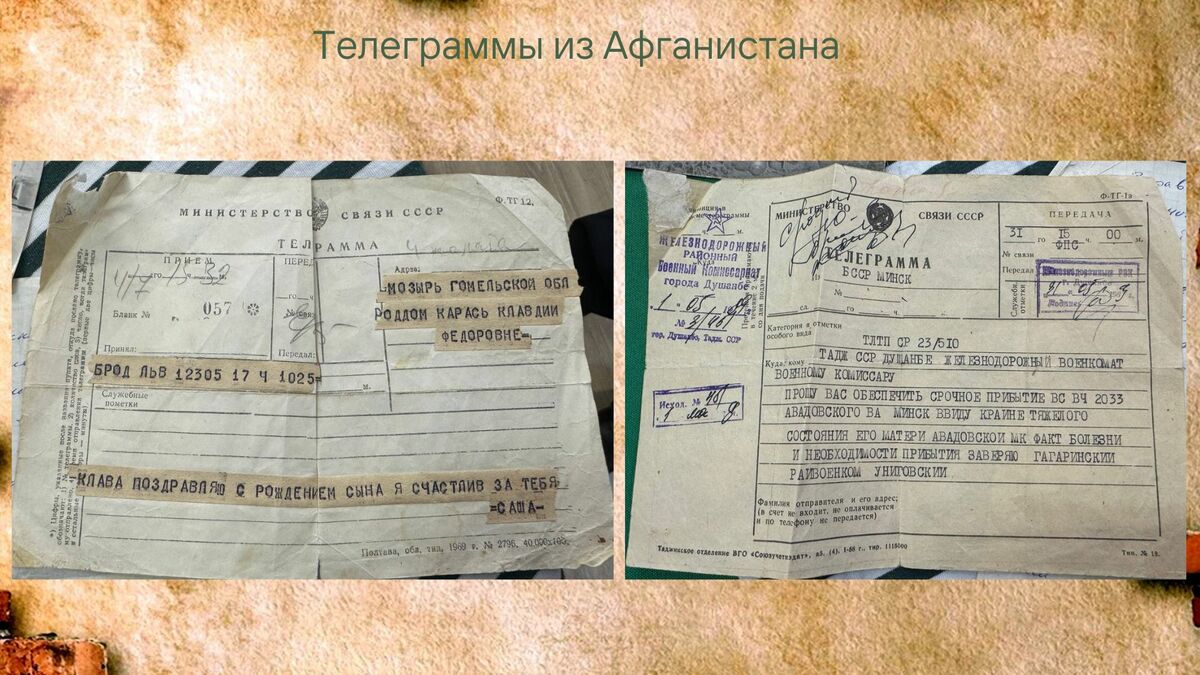 Телеграммы из Афганистана
МИНИСТЕРСТВО СВЯЗИ СССР
Ф-ТГ 12,
ТЕЛГРАММА
ПРИЕМ
го
м.
Бланк №
057
Принял:
Передал:
Адрес:
=МОЗЫРЬ ГОМЕЛЬСКОЙ ОБЛ
РОДДОМ КАРАСЬ КЛАВДИИ
ФЕДОРОВНЕ=
БРОД ЛЬВ 12305 17 Ч 1025=
Служебные
пометки
КЛАВА ПОЗДРАВЛЯЮ С РОЖДЕНИЕМ СЫНА Я СЧАСТЛИВ ЗА ТЕБЯ
=САША-
Полтава, обл. тип, 1969 г. № 2796. 40.000х100.
Ф-ТГ-1а
МИНИСТЕРСТВО СВЯЗИ СССР
ТЕЛЕГРАММА
БССР МИНСК
№
сл.
го
ч.
м.
ПЕРЕДАЧА
31 го 15 ч. 00 м.
ФПС
№ связи
Передал
Служебн. отметки
ЖЕЛЕЗНОДОРОЖНЫЙ
РАЙОННЫЙ
Военный Комиссариат
города Душанбе
гор. Душанбе, Тадж. ССР
Исход. №
Категория и отметки
особого вида
ТЛТП СР 23/510
Куда, кому
ТАДЖ ССР ДУШАНБЕ ЖЕЛЕЗНОДОРОЖНЫЙ ВОЕНКОМАТ
ВОЕННОМУ КОМИССАРУ
ПРОШУ ВАС ОБЕСПЕЧИТЬ СРОЧНОЕ ПРИБЫТИЕ ВС ВЧ 2033
АВАДОВСКОГО ВА МИНСК ВВИДУ КРАИНЕ ТЯЖЕЛОГО
СОСТОЯНИЯ ЕГО МАТЕРИ АВАДОВСКОИ МК ФАКТ БОЛЕЗНИ
И НЕОБХОДИМОСТИ ПРИБЫТИЯ ЗАВЕРЯЮ ГАГАРИНСКИИ
РАИВОЕНКОМ УНИГОВСКИИ
Фамилия отправителя и его адрес;
(в счет не входит, не оплачивается
и по телефону не передается)
Таджикское отделение ВГО «Союзучетиздат»
Тип. № 18.